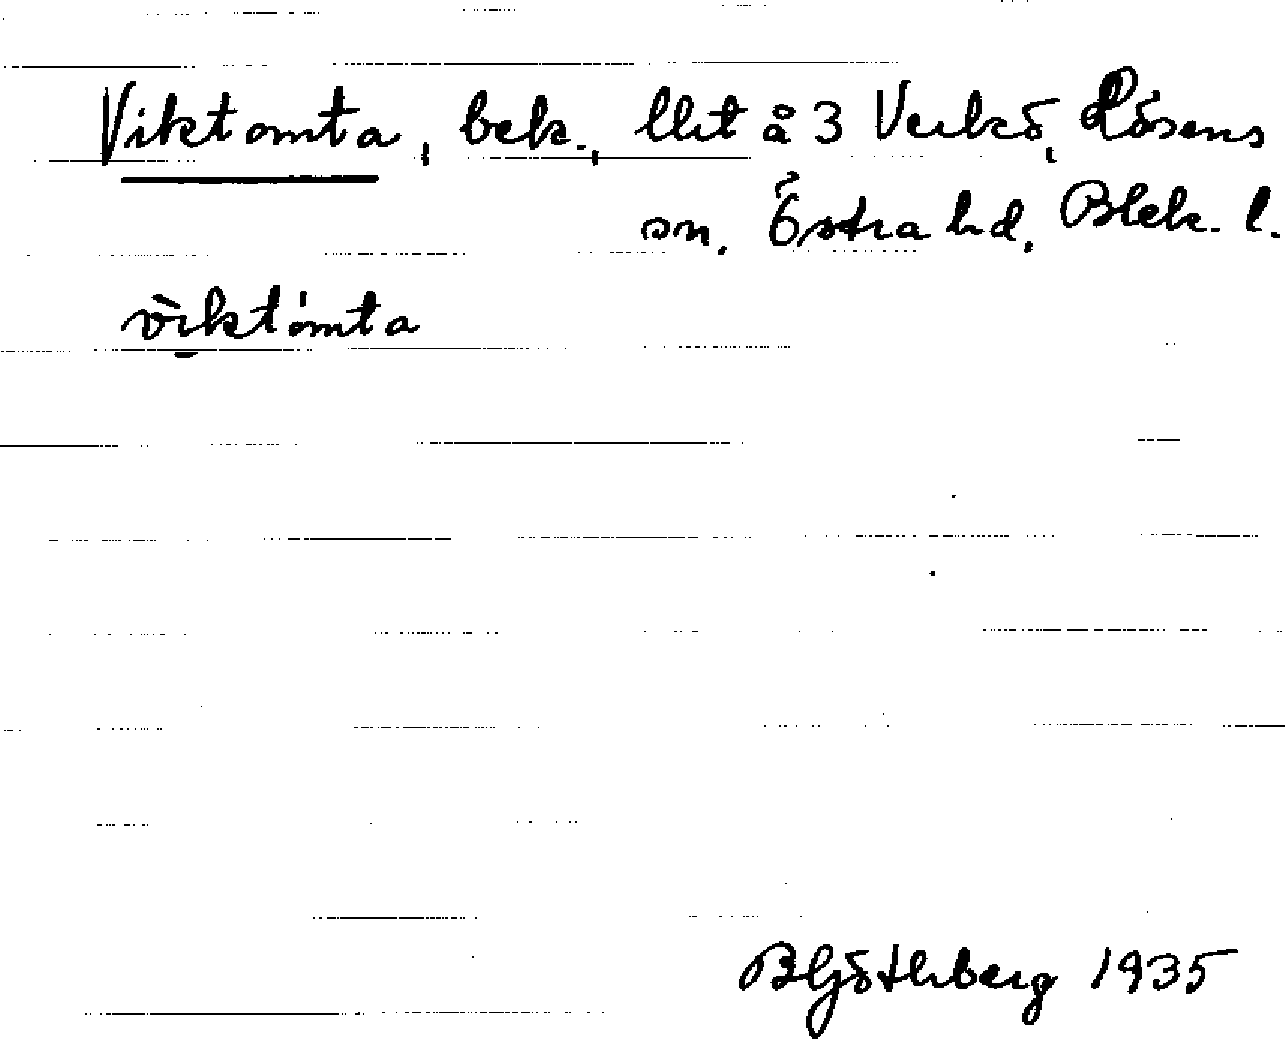 Viktomta, bek., llit å 3 Verkö, Rösens
sn. Östra hd, Blek. l.
vìktómta
BGöthberg 1935